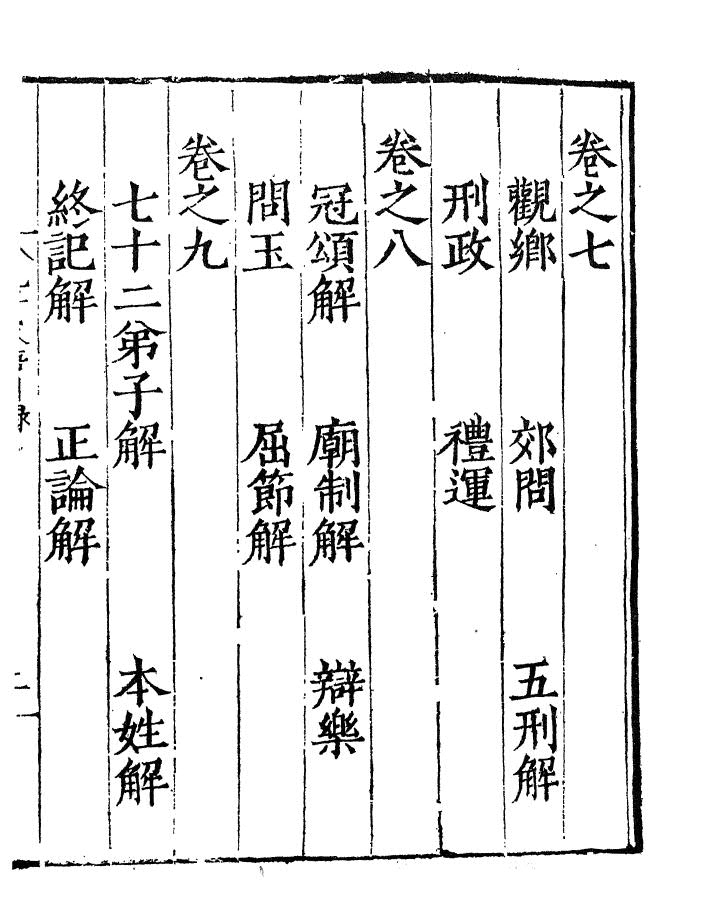 卷之七
觀鄉 郊問 五刑解
刑政 禮運
卷之八
冠頌解 廟制解 辯樂
問玉 屈節解
卷之九
七十二弟子解 本姓解
終記解 正論解